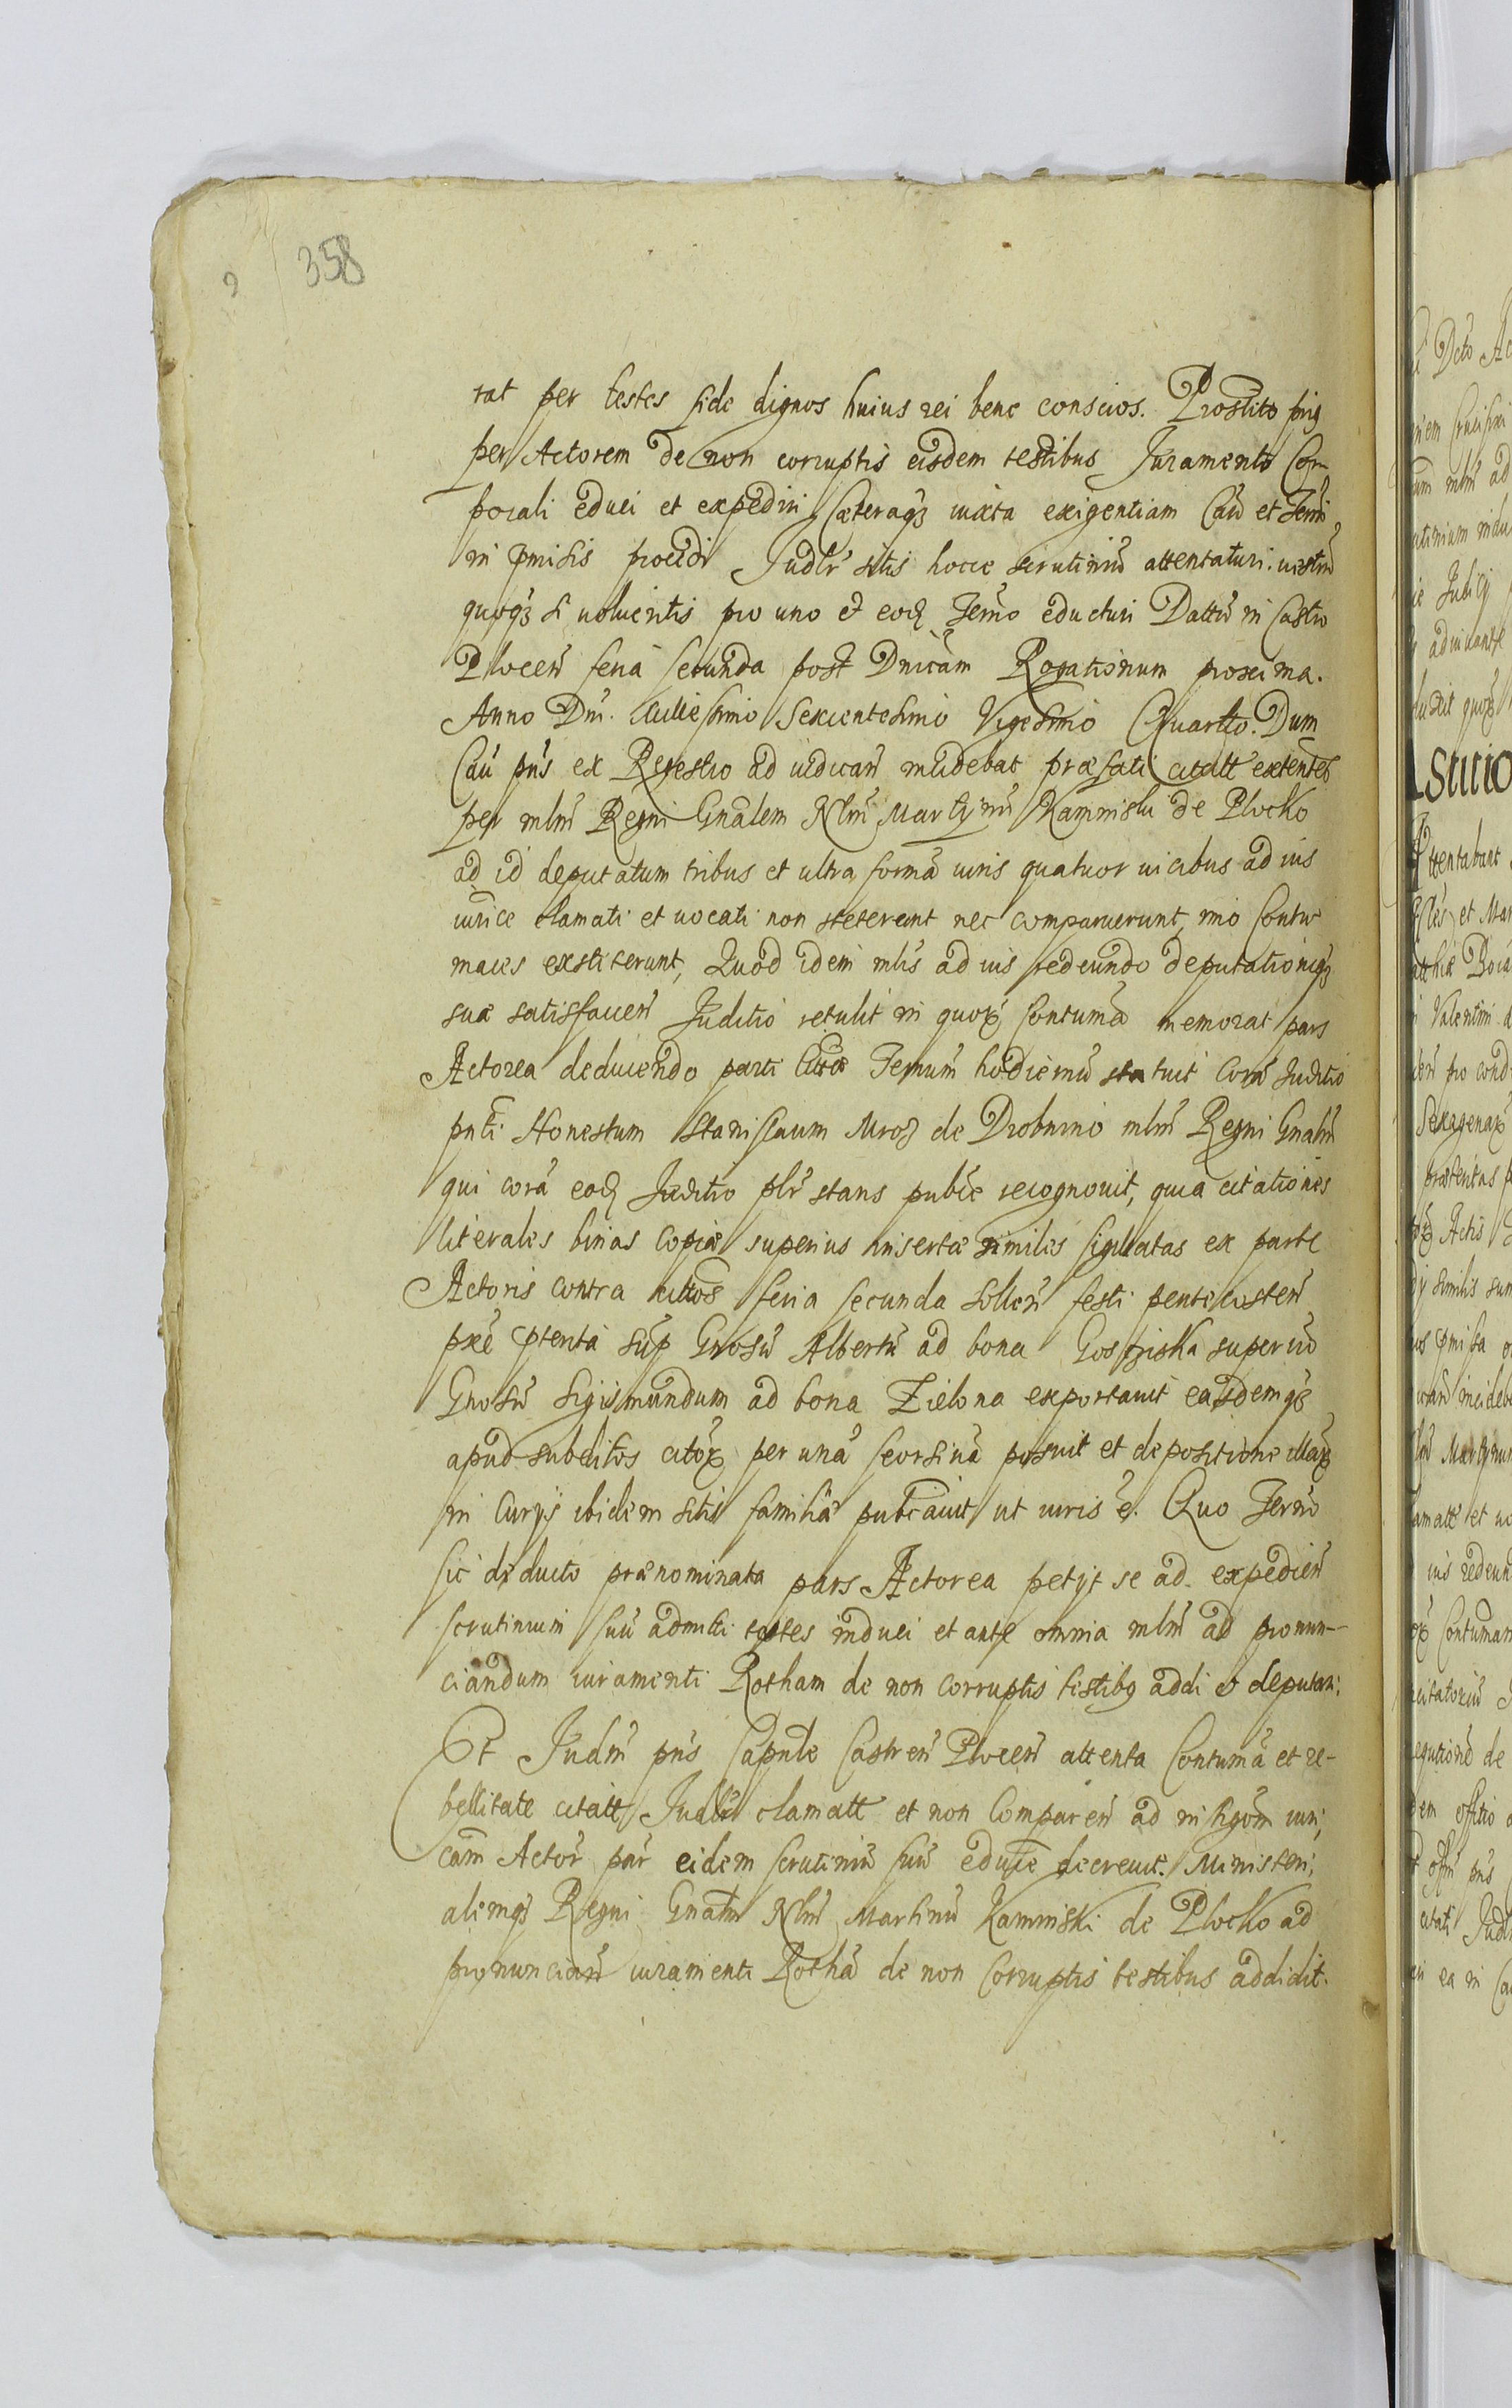 358
rat per testes fide dignos huius rei bene conscios. Prostito priꝰ
per Actorem de non corruptis eisdem testibus Juramento Cor-
porali educi et expediri, Cæteraqꝫ iuxta exigentiam Caũ et Termi
in p̃missis procedi Judlr̃ sitis hocce scrutiniũ attentaturi. uestrũ
quoqꝫ si uolueritis pro uno et eod̃ Term̃o educturi Dattũ in Castro
Plocen̄ feria secunda post Dnicam Rogationum proxima.
Anno Dni. Millesimo Sexcentesimo Vigesimo Quartto. Dum
Caũ pñs ex Regestro ad iudicañ incidebat præfati citatt extentes
per mlm̃ Regni Gnalem Nlm̃ Martynũ Kaminski de Plocko
ad id deputatum tribus et ultra formã iuris quatuor uicibus ad ius
iurice clamati et uocati non steterunt nec comparuerunt imo Contu-
maces exstiterunt, Quod idem mlis ad ius redeundo deputationiqꝫ
suæ satisfacień Juditio retulit in quoꝝ contumã memorat pars
Actorea deducendo parti Citatæ Termum hodiernũ statuit Corã Juditio
pnti Honestum Stanislaum Mroz de Drobnino mlm̃ Regni Gnalm̃
qui corã eod̃ Juditio plr̃ stans publce recognouit, quia citationes
literales binas copiæ superius insertæ similes sigillatas ex parte
Actoris contra cittos feria secunda sollen̄ festi pentecosteñ
præ pterita sup Gnosũ Albertũ ad bona Goszziska super uo
Gnosũ Sigismundum ad bona Zielona exportauit easdemqꝫ
apud subditos citoꝝ per unã seorsiuã posuit et depositione illaꝝ
in Curijs ibidem sitis familiæ publcauit ut iuris ẽ. Quo Termo
sic deducto prænominata pars Actorea petyt se ad expedień
scrutinium suũ admitti testes induci et ante omnia mlm̃ ad pronun-
ciandum iuramenti Rotham de non corruptis testibꝰ addi et deputari.
Et Judm̃ pñs Capnle Castreń Plocen̄ attenta Contumã et re-
bellitate citatt, Judlr̃ clamatt et non Compareń ad instigõm iuri-
cam Actor̃ par̃ eidem scrutiniũ suũ educe decreuit. Ministeri-
alemqꝫ Regni Gnalm̃ Nlm̃ Martinũ Kaminski de Plocko ad
pronunciañ iuramenti Rothã de non Corruptis testibus addidit.